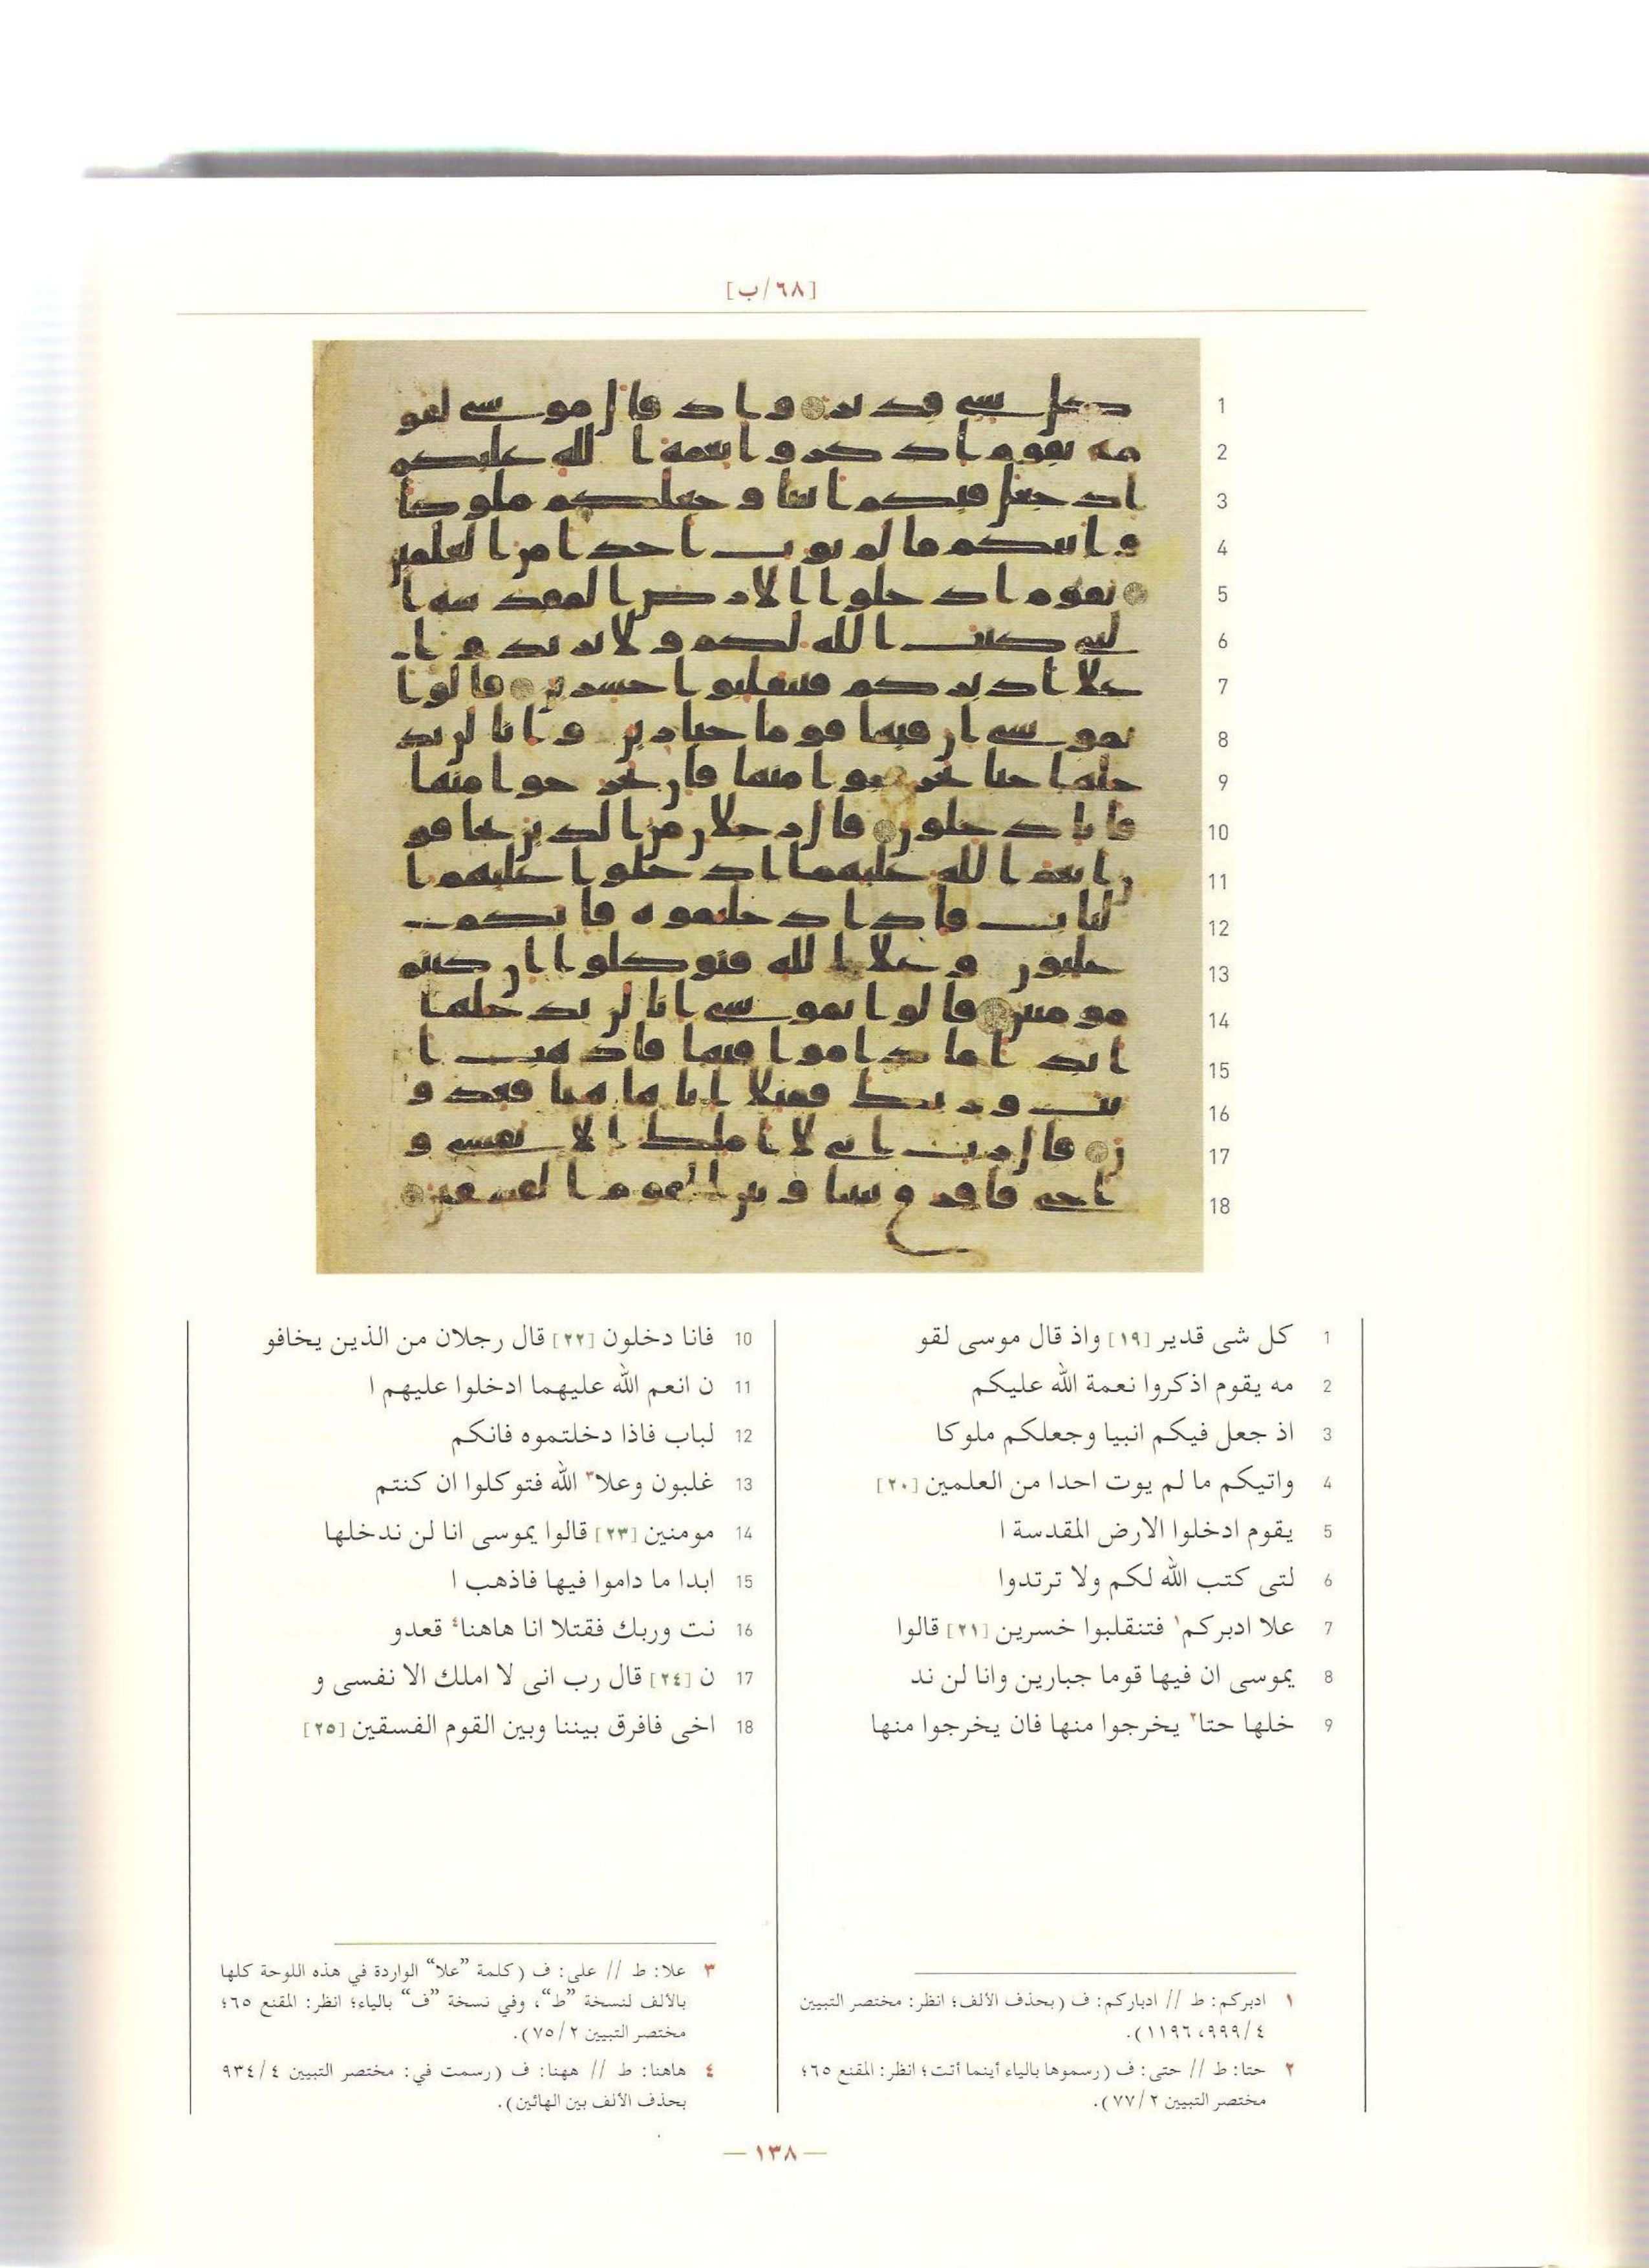 [٦٨/ب]
1 كل شى قدير [١٩] واذ قال موسى لقو
2 مه يقوم اذكروا نعمة الله عليكم
3 اذ جعل فيكم انبيا وجعلكم ملوكا
4 واتيكم ما لم يوت احدا من العلمين [٢٠]
5 يقوم ادخلوا الارض المقدسة ا
6 لتى كتب الله لكم ولا ترتدوا
7 علا ادبركم١ فتنقلبوا خسرين [٢١] قالوا
8 يموسى ان فيها قوما جبارين وانا لن ند
9 خلها حتا٢ يخرجوا منها فان يخرجوا منها
10 فانا دخلون [٢٢] قال رجلان من الذين يخافو
11 ن انعم الله عليهما ادخلوا عليهم ا
12 لباب فاذا دخلتموه فانكم
13 غلبون وعلا٣ الله فتوكلوا ان كنتم
14 مومنين [٢٣] قالوا يموسى انا لن ندخلها
15 ابدا ما داموا فيها فاذهب ا
16 نت وربك فقتلا انا هاهنا٤ قعدو
17 ن [٢٤] قال رب انى لا املك الا نفسى و
18 اخى فافرق بيننا وبين القوم الفسقين [٢٥]
١ ادبركم: ط // ادباركم: ف (بحذف الألف؛ انظر: مختصر التبيين
٤/٩٩٩، ١١٩٦).
٢ حتا: ط // حتى: ف (رسموها بالياء أينما أتت؛ انظر: المقنع ٦٥؛
مختصر التبيين ٢/٧٧).
٣ علا: ط // على: ف (كلمة ”علا“ الواردة في هذه اللوحة كلها
بالألف لنسخة ”ط“، وفي نسخة ”ف“ بالياء؛ انظر: المقنع ٦٥؛
مختصر التبيين ٢/٧٥).
٤ هاهنا: ط // ههنا: ف (رسمت في: مختصر التبيين ٤/٩٣٤
بحذف الألف بين الهائين).
— ١٣٨ —